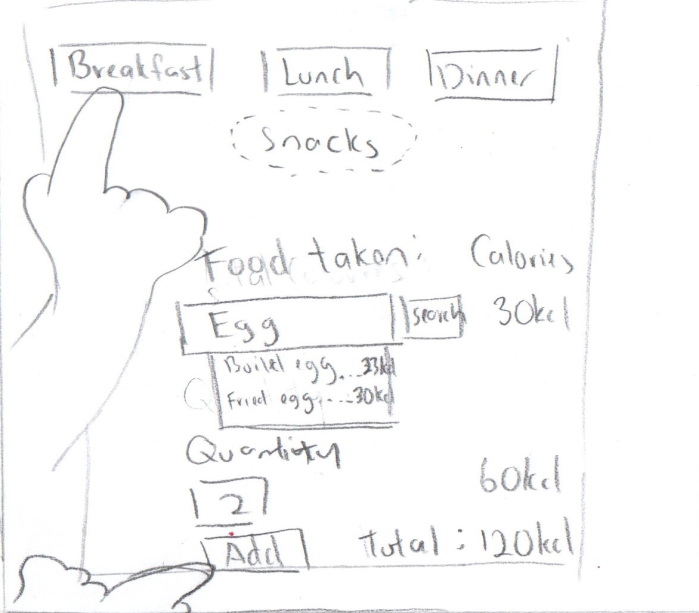 Breakfast Lunch Dinner
Snacks
Food taken: Calories
Egg search 30kcl
Boilel egg...33kcl
Fried egg...30kcl
Quantity
2 60kcl
Add Total: 120kcl